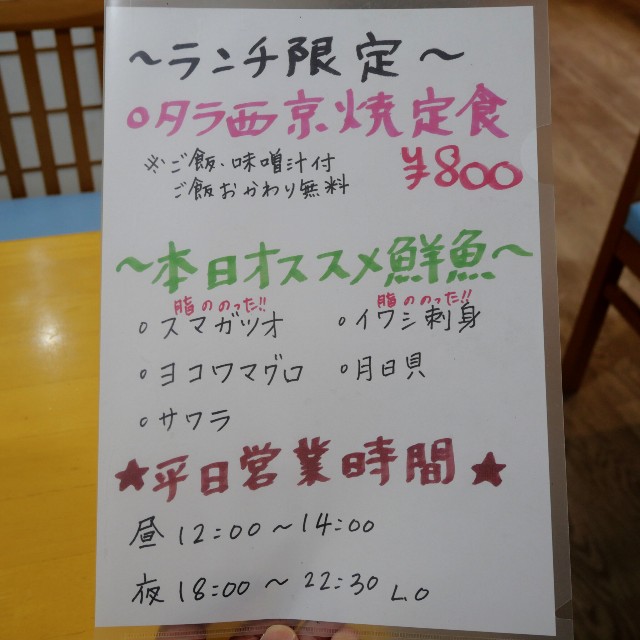 ～ランチ限定～
○タラ西京焼定食
※ご飯、味噌汁付
ご飯おかわり無料
¥800
～本日オススメ鮮魚～
脂ののった!!
○スマガツオ
脂ののった!!
○イワシ刺身
○ヨコワマグロ
○月日貝
○サワラ
★平日営業時間★
昼12:00～14:00
夜18:00～22:30 LO